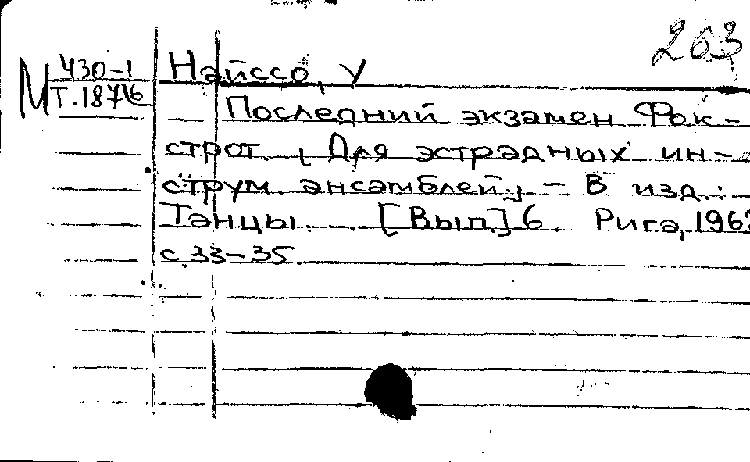 263
М Ч30-1
Т.18746
Найссо, У
Последний экзамен Фок-
строт. (Для эстрадных ин-
струм. ансамблей). - В изд.:
Танцы. [Вып] 6. Рига, 1963
с. 33-35.